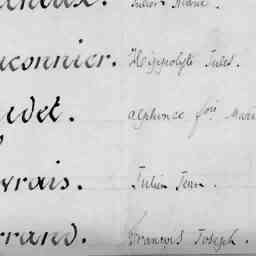 Julien Marie.
uconnier. Hyppolyte Jules.
udet. alphonce fois Marie
vrais. Julien Jean.
rrand. François Joseph.